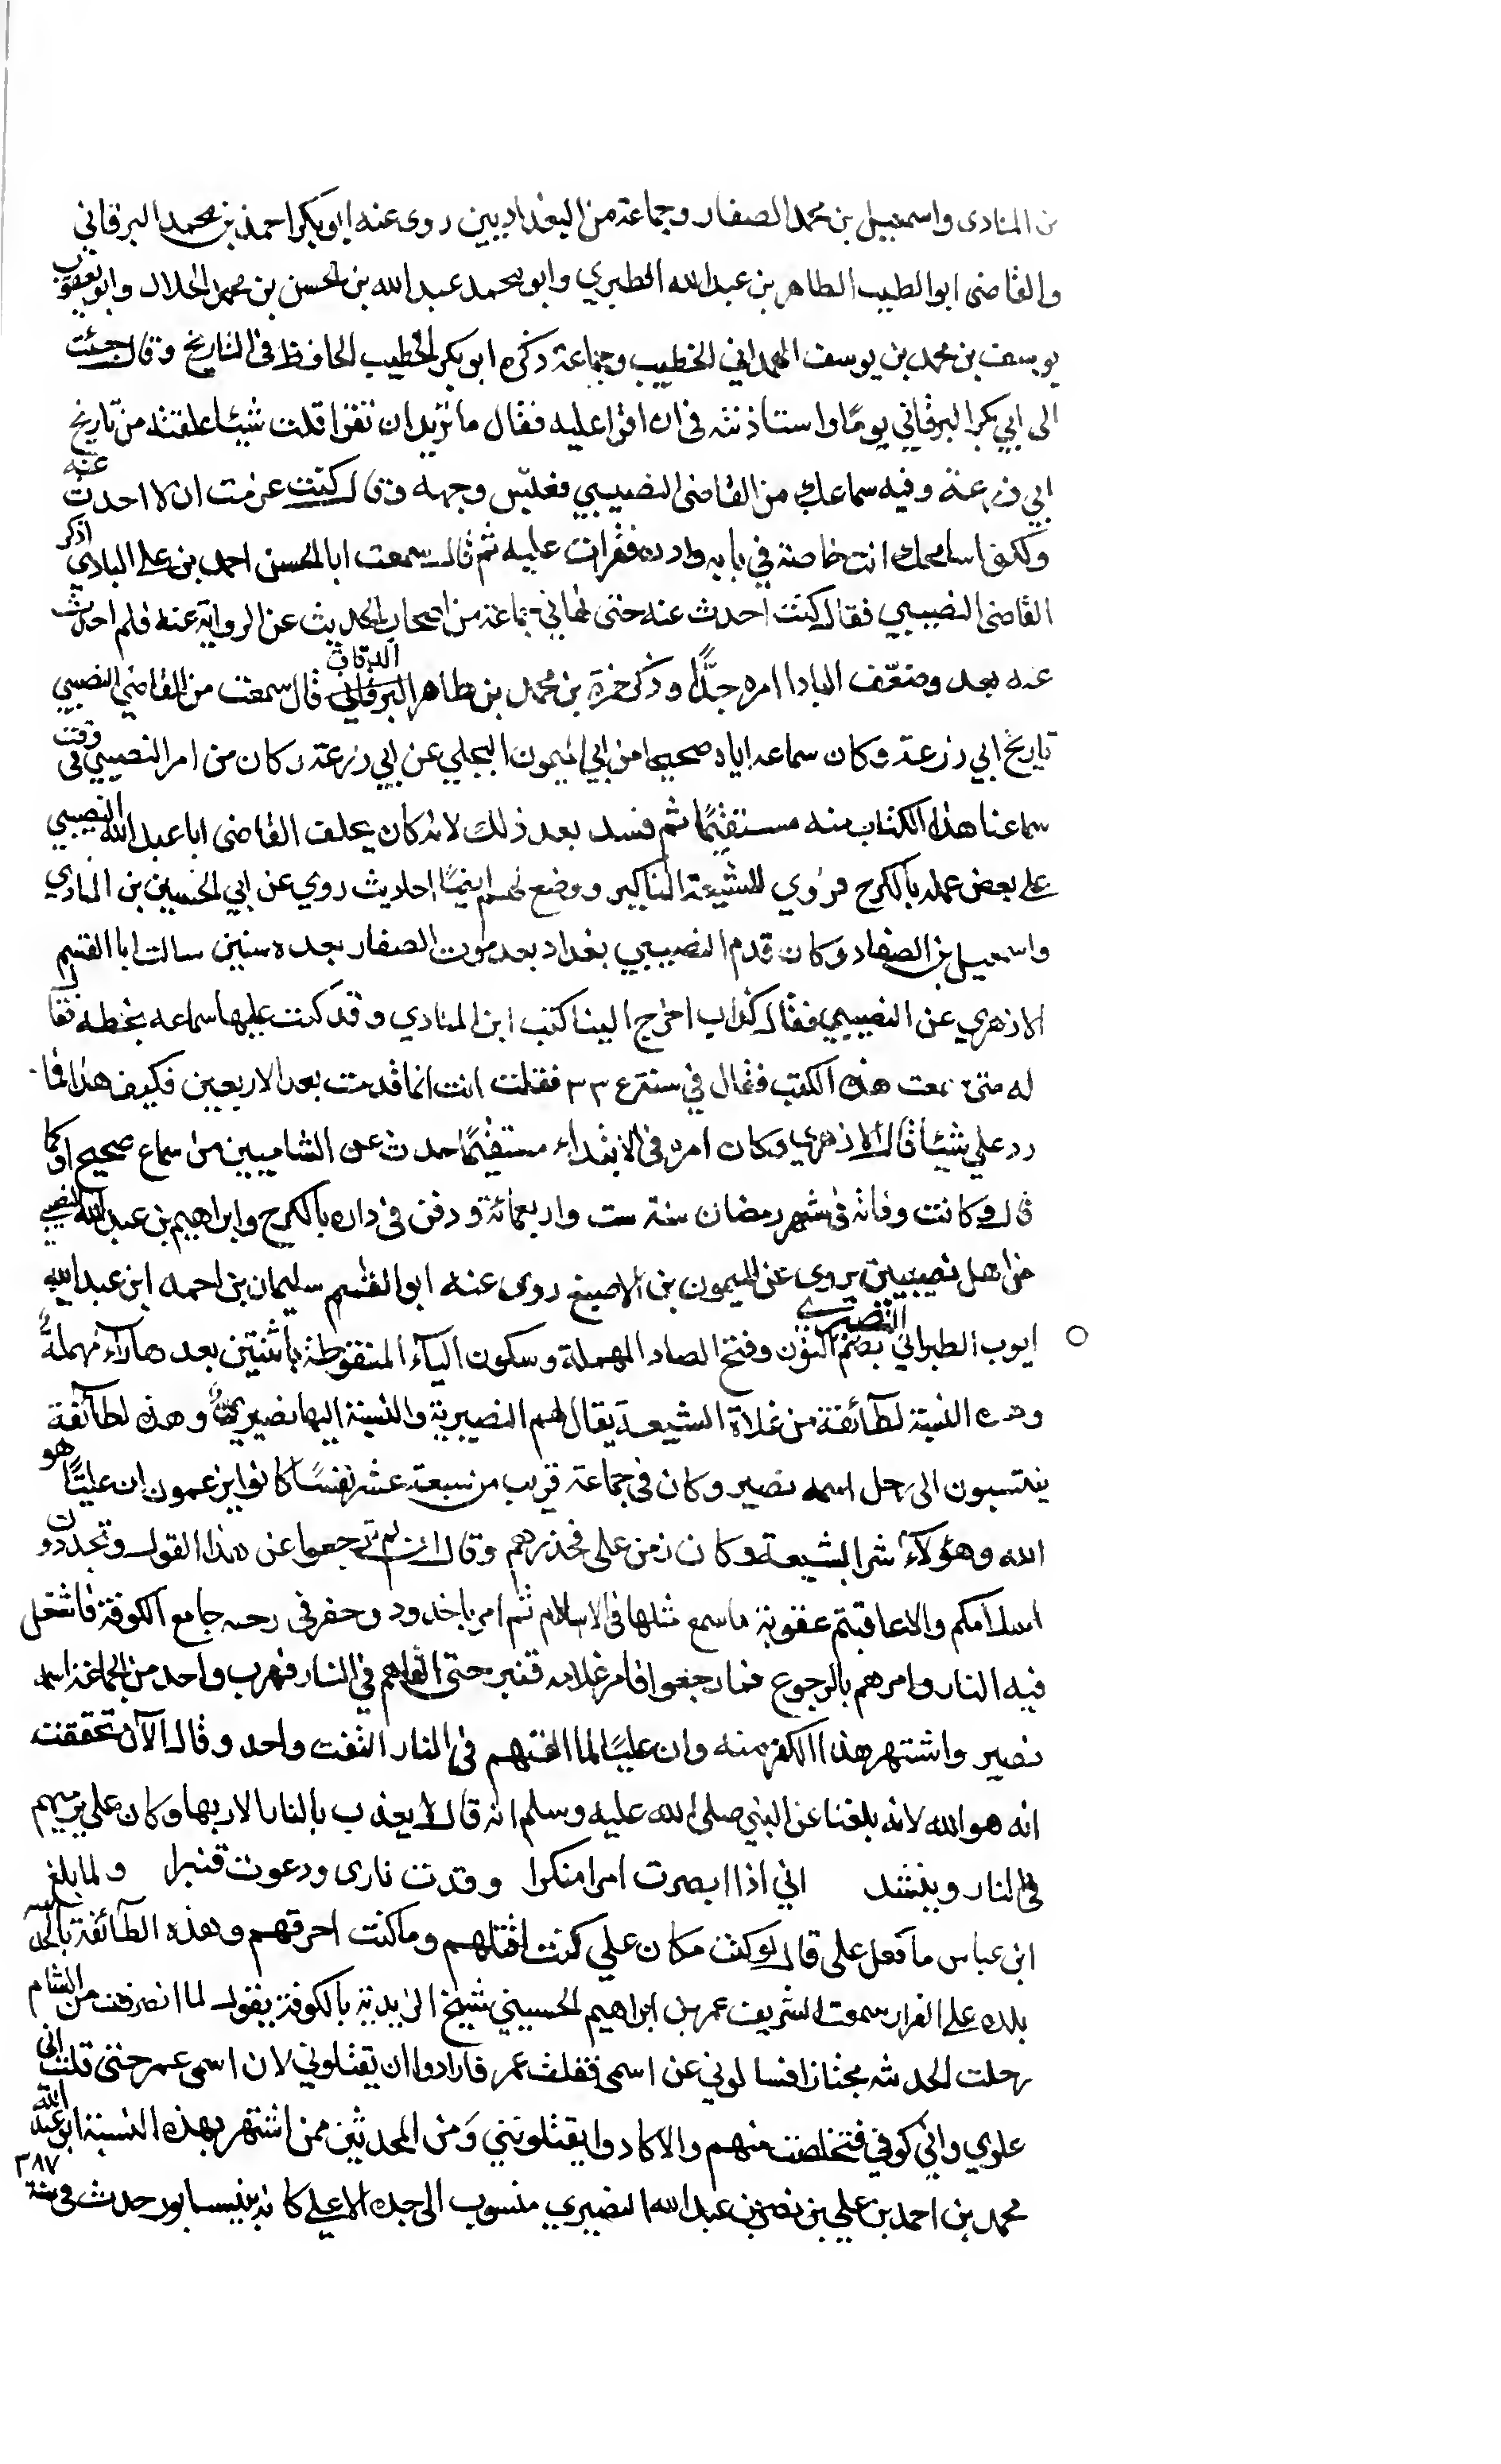 بن المنادى واسمعيل بن محمد الصفار وجماعة من البغداديين روى عنه ابو بكر احمد بن محمد البرقاني
والقاضى ابو الطيب الطاهر بن عبد الله الطبري وابو محمد عبد الله بن الحسن بن محمد الخلال وابو يعقوب
يوسف بن محمد بن يوسف الهمداني الخطيب وجماعة ذكره ابو بكر الخطيب الحافظ فى التاريخ وقال جئت
الى ابي بكر البرقاني يومًا واستاذنته فى ان اقرا عليه فقال ما تريد ان تقرا قلت شيئا علقته من تاريخ
ابي زرعة وفيه سماعك من القاضى النصيبي فعبس وجهه وقال كنت عزمت ان لا احدث عنه
ولكنى اسامحك انت خاصة في بابه واذن فقرات عليه ثم قال سمعت ابا الحسن احمد بن على البادي ذكر
القاضى النصيبي فقال كنت احدث عنه حتى نهاني جماعة من اصحاب الحديث عن الرواية عنه فلم احدث
عنه بعد وضعّف البادا امره جدًّا وذكر حمزة بن محمد بن طاهر الدقاق قال سمعت من القاضى النصيبي
تاريخ ابي زرعة وكان سماعه اياه صحيحا من ابي الميمون البجلي عن ابي زرعة وكان من امر النصيبي فى وقت
سماعنا هذا الكتاب منه مستقيمًا ثم فسد بعد ذلك لانه كان يخلف القاضى ابا عبد الله النصيبي
على بعض عمله بالكرخ فروي للشيعة المناكير ووضع لهم ايضًا احاديث روي عن ابي الحسين بن المنادي
واسمعيل بن الصفار وكان قدم النصيبي بغداد بعد موت الصفار بعده سنين سالت ابا القسم
الازهري عن النصيبي فقال كذاب اخرج الينا كتب ابن المنادي وقد كتب عليها سماعه بخطه فقال
له متى سمعت هذه الكتب فقال في سنة ٣٣٤ فقلت انت انما قدمت بعد الاربعين فكيف هذا فما
رد علي شيئا قال الازهري وكان امره فى الابتداء مستقيمًا حدث عن الشاميين من سماع صحيح او كما
قال وكانت وفاته فى شهر رمضان سنة ست واربعمائة ودفن فى داره بالكرخ وابراهيم بن عبد الله النصيبي
من اهل نصيبين يروى عن الميمون بن الاصبغ روى عنه ابو القسم سليمان بن احمد ابن عبد الله
ايوب الطبراني النصيري بضم النون وفتح الصاد المهملة وسكون الياء المنقوطة باثنتين بعدها راء مهملة
وهذه النسبة لطائفة من غلاة الشيعة يقال لهم النصيرية والنسبة اليها نصيري وهذه الطائفة
ينتسبون الى رجل اسمه نصير وكان فى جماعة قريب من سبعة عشر نفسًا كانوا يزعمون ان عليًّا هو
الله وهؤلاء شر الشيعة وكان زمن على فحذرهم وقال ان لم ترجعوا عن هذا القول وتجددون
اسلامكم والا عاقبتكم عقوبة ما سمع مثلها فى الاسلام ثم امر باخدود وحفر فى رحبه جامع الكوفة فاشعل
فيه النار وامرهم بالرجوع فما رجعوا فامر غلامه قنبر حتى القاهم في النار فهرب واحد من الجماعة اسمه
نصير واشتهر هذا الكفر منه وان عليًا لما القاهم فى النار التفت واحد وقال الآن تحققت
انه هو الله لانه بلغنا عن النبي صلى الله عليه وسلم انه قال لا يعذب بالنار الا ربها وكان علي يرميهم
فى النار وينشد اني اذا ابصرت امرا منكرا وقدت نارى ودعوت قنبرا ولما بلغ
ابن عباس ما فعل على قال لو كنت مكان علي كنت اقتلهم وما كنت احرقهم وهذه الطائفة بالحديثة
بلده على الفرات سمعت الشريف عمر بن ابراهيم الحسيني شيخ الزيدية بالكوفة يقول لما انصرفت من الشام
رحلت الحديثه مجتازا فسالوني عن اسمى فقلت عمر فارادوا ان يقتلوني لان اسمى عمر حتى قلت انى
علوي واني كوفي فتخلصت منهم والا كادوا يقتلونني ومن المحدثين ممن اشتهر بهذه النسبة ابو عبد الله
محمد بن احمد بن علي بن نصير بن عبد الله النصيري منسوب الى جده الاعلى كان بنيسابور حدث فى سنة ٣٨٧